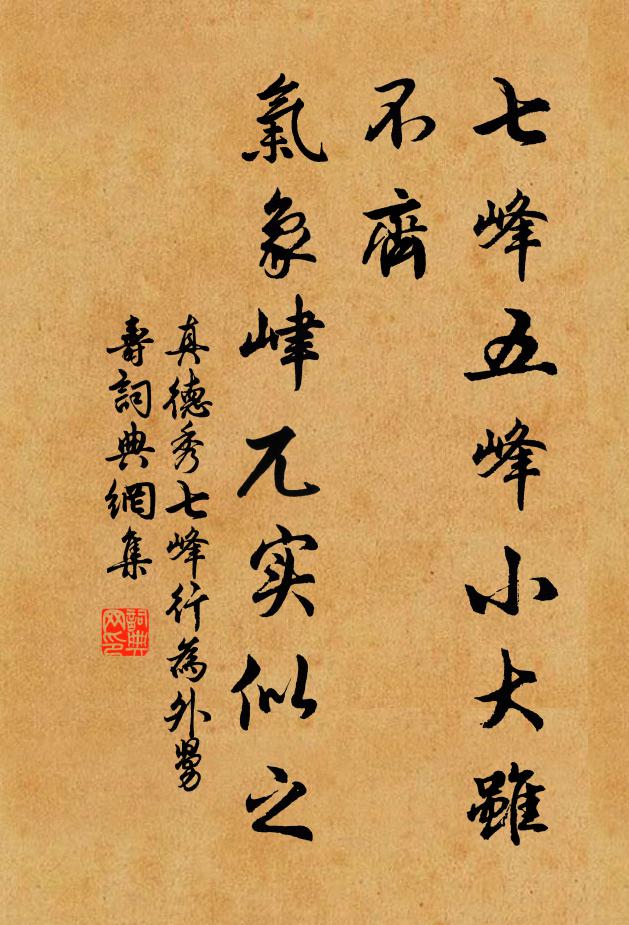 七峰五峰小大雖
不齊
氣象峍兀实似之
真德秀七峰行為外舅
壽詞典網集
詞典网印